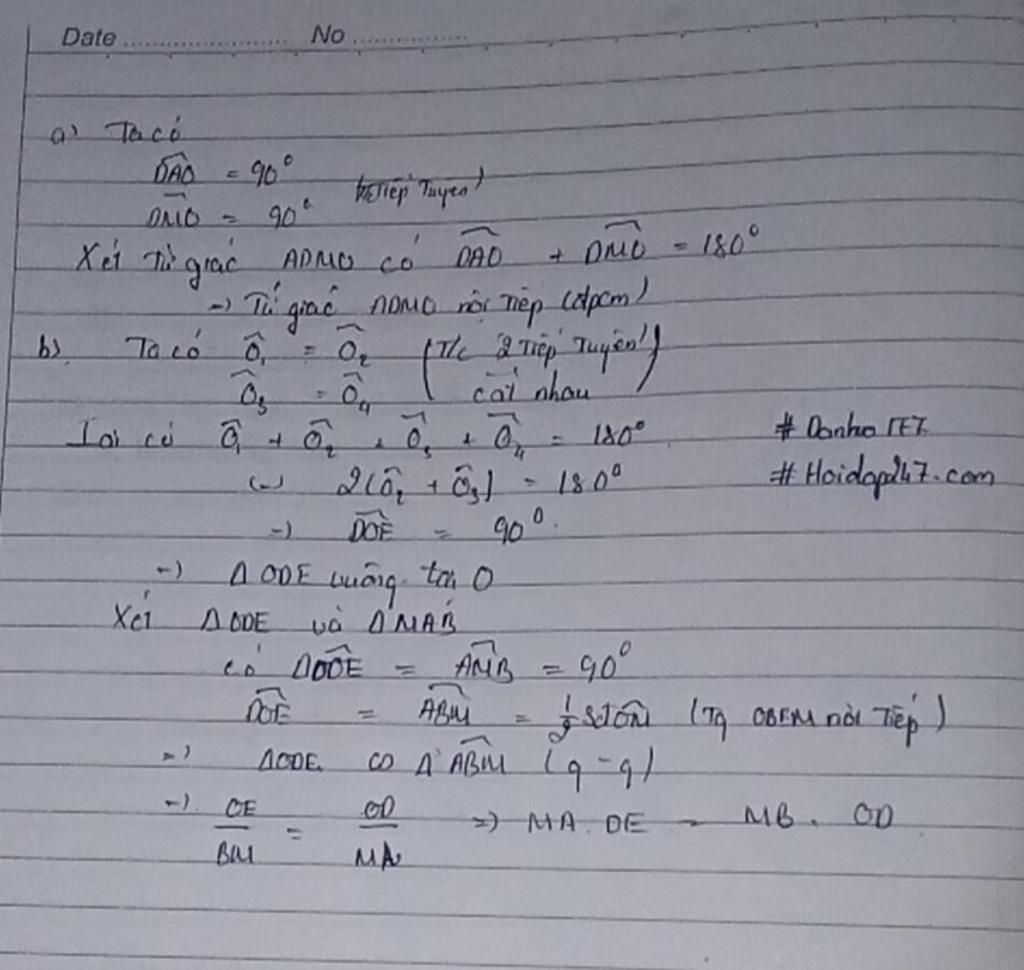 Date ........................ No .................
a) Ta có
$\widehat{DAO}$ = 90°
$\widehat{DMO}$ = 90° Tiếp Tuyến)
Xét Tứ giác ADMO có $\widehat{DAO}$ + $\widehat{DMO}$ = 180°
=) Tứ giác ADMO nội Tiếp (đpcm)
b) Ta có $\widehat{O}_1$ = $\widehat{O}_2$ (T/c 2 Tiếp Tuyến
$\widehat{O}_3$ = $\widehat{O}_4$ cắt nhau)
Lại có $\widehat{O}_1$ + $\widehat{O}_2$ + $\widehat{O}_3$ + $\widehat{O}_4$ = 180°
(-) 2($\widehat{O}_2$ + $\widehat{O}_3$) = 180°
#Hoidap247.com
=) $\widehat{DOE}$ = 90°.
=) Δ ODE vuông tại O
Xét Δ ODE và Δ MAB
có $\widehat{DOE}$ = $\widehat{AMB}$ = 90°
$\widehat{OE}$ = $\widehat{ABM}$ = (Tg OBEM nội Tiếp)
=) ΔODE Δ ABM (g-g)
=) $\frac{OE}{BM}$ = $\frac{OD}{MA}$ =) MA. OE = MB. OD